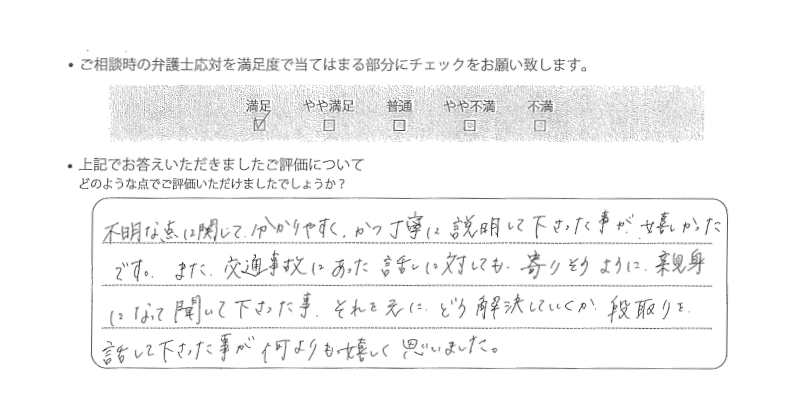 ・ご相談時の弁護士応対を満足度で当てはまる部分にチェックをお願い致します。
満足 やや満足 普通 やや不満 不満
☑ □ □ □ □
・上記でお答えいただきましたご評価について
どのような点でご評価いただけましたでしょうか?
不明な点に関して、分かりやすく、かつ丁寧に説明して下さった事が嬉しかった
です。また、交通事故にあった話しに対しても、寄りそうように、親身
になって聞いて下さった事、それを元に、どう解決していくか、段取りを
話して下さった事が何よりも嬉しく思いました。